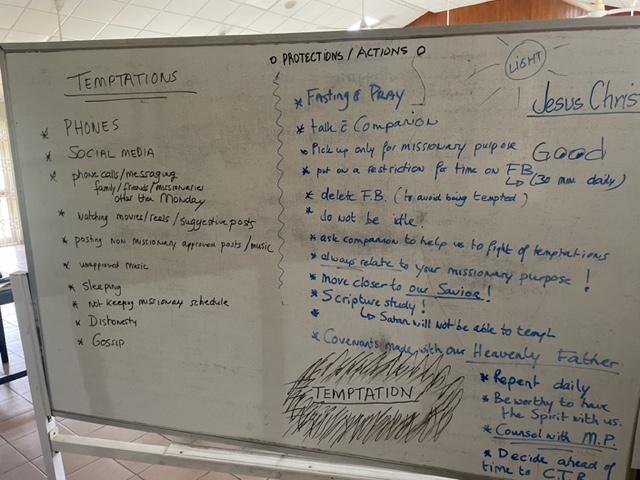 TEMPTATIONS
* PHONES
* SOCIAL MEDIA
* phone calls/messaging
family/friends/missionaries
other than Monday
* watching movies/reels/suggestive posts
* posting non missionary approved posts/music
* unapproved music
* Sleeping
* not keeping missionary schedule
* Dishonesty
* Gossip
o PROTECTIONS / ACTIONS o
LIGHT
Jesus Christ
* Fasting & PRAY
* talk c̄ Companion
* Pick up only for missionary purpose GOOD
* put on a restriction for time on FB
↳ (30 min daily)
* delete F.B. (to avoid being tempted)
* do not be idle.
* ask companion to help us to fight of temptations
* always relate to your missionary purpose !
* Move closer to our Savior!
* Scripture study!
* ↳ Satan will not be able to tempt
* Covenants made with our Heavenly Father
TEMPTATION
* Repent daily
* Be worthy to have
the Spirit with us.
* Counsel with M.P.
* Decide ahead of
time to C.T.R